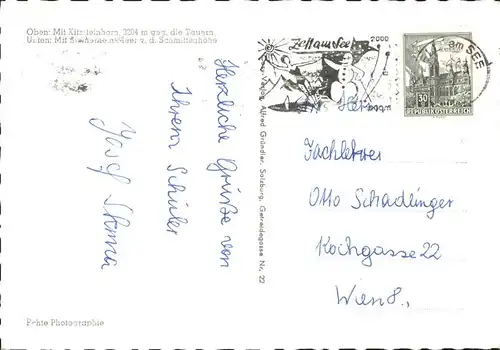 Oben: Mit Kitzsteinhorn, 3204 m geg. die Tauern
Unten: Mit Steinernem Meer v. d. Schmittenhöhe
Zell am See
2000
am SEE
30
REPUBLIK ÖSTERREICH
Herzliche Grüße von
Ihrem Schüler
Josef
Alfred Gründler, Salzburg, Getreidegasse Nr. 22
Herrn
Fachlehrer
Otto Schadinger
Kochgasse 22
Wien 8.,
Echte Photographie